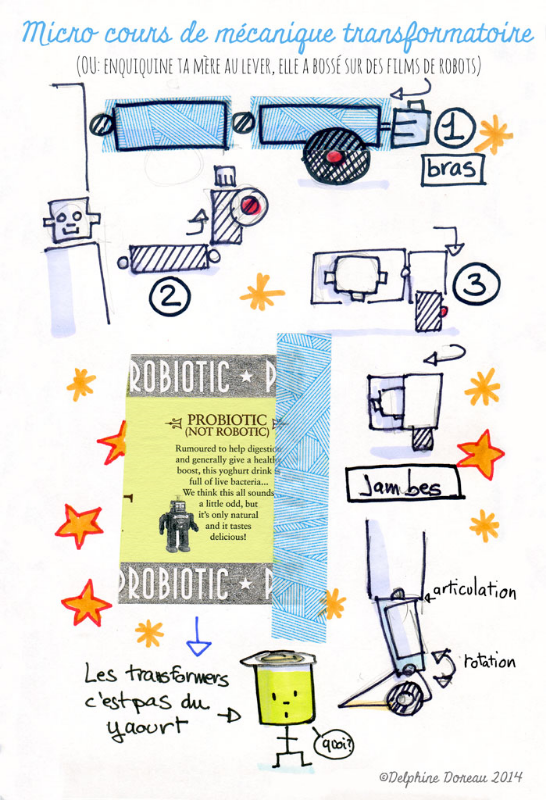 Micro cours de mécanique transformatoire
(OU: ENQUIQUINE TA MÈRE AU LEVER, ELLE A BOSSÉ SUR DES FILMS DE ROBOTS)
1
bras
2
3
ROBIOTIC ★ P
PROBIOTIC
(NOT ROBOTIC)
Rumoured to help digestion
and generally give a healthy
boost, this yoghurt drink is
full of live bacteria...
We think this all sounds
a little odd, but
it's only natural
and it tastes
delicious!
PROBIOTIC ★ P
Jambes
articulation
rotation
Les transformers
c'est pas du
yaourt
quoi?
©Delphine Doreau 2014